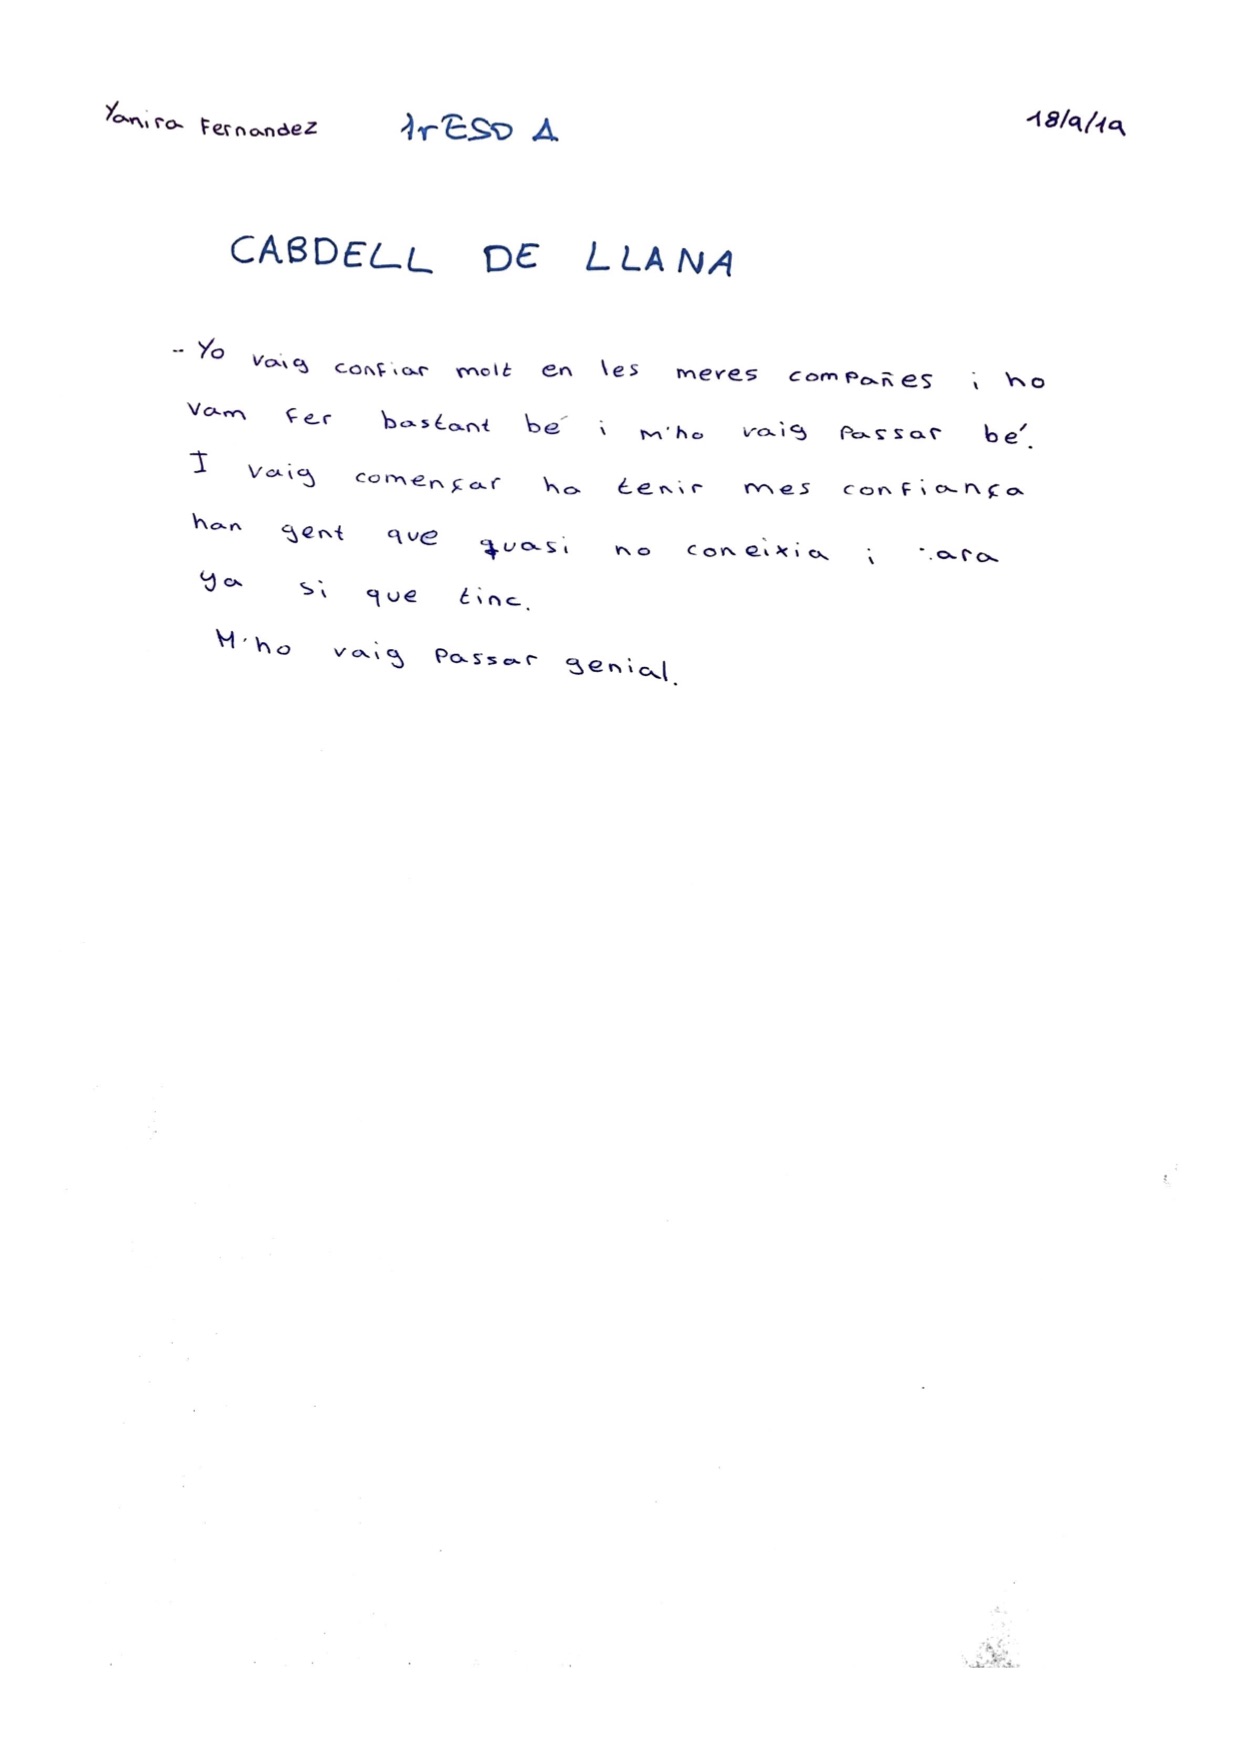 Yanira Fernandez 1r ESO A 18/9/19
CABDELL DE LLANA
- Yo vaig confiar molt en les meres compañes i ho
vam fer bastant bé i m'ho vaig passar bé.
I vaig començar ha tenir mes confiança
han gent que quasi no coneixia i ara
ya si que tinc.
M'ho vaig passar genial.